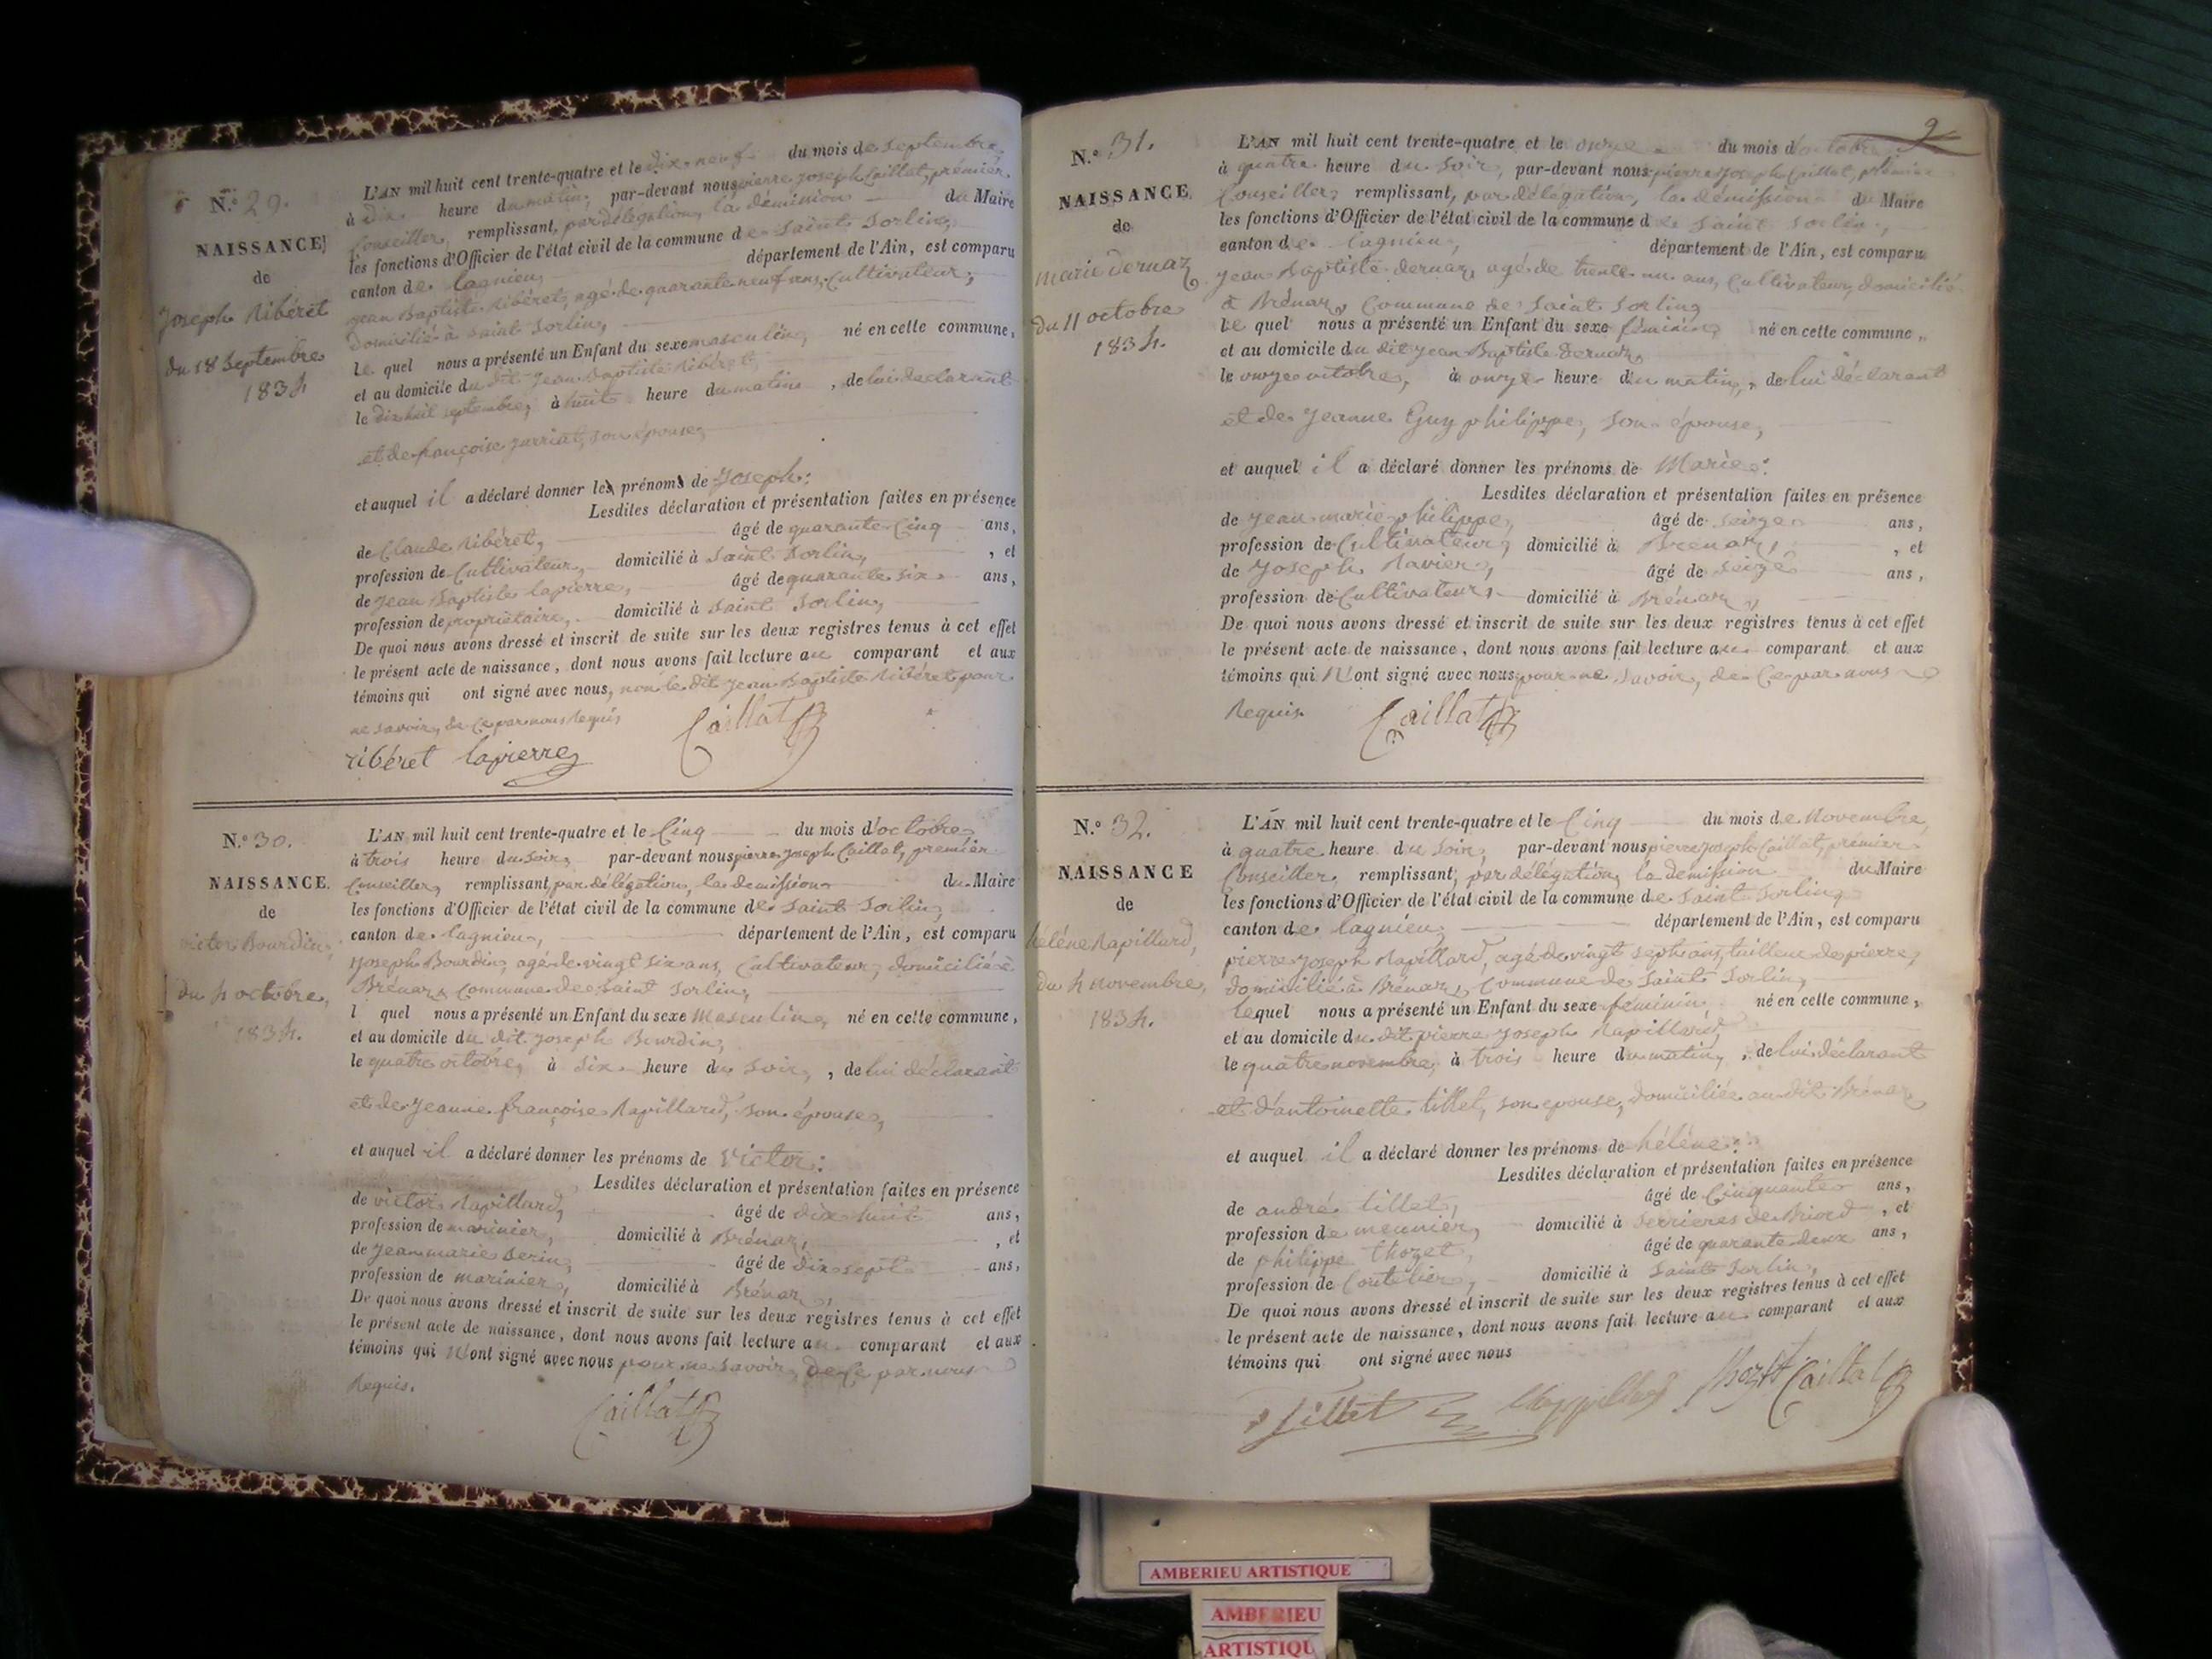 N.° 29.
NAISSANCE
de
Joseph Ribéret
du 18 Septembre
1834
L'AN mil huit cent trente-quatre et le dix-neuf du mois de septembre,
à dix heure du matin, par-devant nous pierre joseph Caillat, prémier
Conseiller, remplissant, par délégation, la démission du Maire
les fonctions d'Officier de l'état civil de la commune de Saint Sorlin,
canton de lagnieu, département de l'Ain, est comparu
jean Baptiste Ribéret, agé de quarante neuf ans, Cultivateur,
domicilié à Saint Sorlin,
Le quel nous a présenté un Enfant du sexe masculin, né en cette commune,
et au domicile du dit jean Baptiste Ribéret,
le dix huit septembre, à huit heure du matin, de lui déclarant
et de françoise jarriat, son épouse,
et auquel il a déclaré donner les prénoms de Joseph:
Lesdites déclaration et présentation faites en présence
de Claude Ribéret, âgé de quarante Cinq ans,
profession de Cultivateur, domicilié à Saint Sorlin, , et
de jean Baptiste lapierre, âgé de quarante six ans,
profession de propriétaire, domicilié à Saint Sorlin,
De quoi nous avons dressé et inscrit de suite sur les deux registres tenus à cet effet
le présent acte de naissance, dont nous avons fait lecture au comparant et aux
témoins qui ont signé avec nous, non le dit jean Baptiste Ribéret pour
ne savoir, de Ce par nous Requis
Caillat
ribéret lapierre
N.° 30.
NAISSANCE.
de
victor Bourdin,
du 4 octobre,
1834.
L'AN mil huit cent trente-quatre et le Cinq du mois d'octobre,
à trois heure du soir, par-devant nous pierre joseph Caillat, premier
Conseiller, remplissant, par délégation, la demission du Maire
les fonctions d'Officier de l'état civil de la commune de Saint Sorlin,
canton de lagnieu, département de l'Ain, est comparu
joseph Bourdin, agé de vingt six ans, Cultivateur, domicilié à
Brénaz, Commune de Saint Sorlin,
l quel nous a présenté un Enfant du sexe Masculin, né en cette commune,
et au domicile du dit joseph Bourdin,
le quatre octobre, à six heure du soir, , de lui déclarant
et de jeanne françoise Rapillard, son épouse,
et auquel il a déclaré donner les prénoms de Victor:
Lesdites déclaration et présentation faites en présence
de victor Rapillard, âgé de dix huit ans,
profession de marinier, domicilié à Brénaz, , et
de jean marie Serin, âgé de dix sept ans,
profession de marinier, domicilié à Brénaz,
De quoi nous avons dressé et inscrit de suite sur les deux registres tenus à cet effet
le présent acte de naissance, dont nous avons fait lecture au comparant et aux
témoins qui N'ont signé avec nous pour ne savoir, de Ce par nous
Requis.
Caillat
9
N.° 31.
NAISSANCE
de
marie dernaz
du 11 octobre
1834.
L'AN mil huit cent trente-quatre et le onze du mois d'octobre
à quatre heure du soir, par-devant nous pierre joseph Caillat, prémier
Conseiller, remplissant, par délégation, la démission du Maire
les fonctions d'Officier de l'état civil de la commune de Saint Sorlin,
canton de lagnieu, département de l'Ain, est comparu
jean Baptiste dernaz, agé de trente un ans, Cultivateur, domicilié
à Brénaz, Commune de Saint Sorlin,
Le quel nous a présenté un Enfant du sexe féminin, né en cette commune,
et au domicile du dit jean Baptiste dernaz,
le onze octobre, à onze heure du matin, , de lui déclarant
et de jeanne Guy philippe, son épouse,
et auquel il a déclaré donner les prénoms de Marie:
Lesdites déclaration et présentation faites en présence
de jean marie philippe, âgé de seize ans,
profession de Cultivateur, domicilié à Brénaz, , et
de joseph Ravier, âgé de seize ans,
profession de Cultivateur, domicilié à Brénaz,
De quoi nous avons dressé et inscrit de suite sur les deux registres tenus à cet effet
le présent acte de naissance, dont nous avons fait lecture au comparant et aux
témoins qui N'ont signé avec nous pour ne savoir, de Ce par nous
Requis.
Caillat
N.° 32.
NAISSANCE
de
héléne Rapillard,
du 4 novembre,
1834.
L'AN mil huit cent trente-quatre et le Cinq du mois de Novembre,
à quatre heure du soir, par-devant nous pierre joseph Caillat, prémier
Conseiller, remplissant, par délégation, la demission du Maire
les fonctions d'Officier de l'état civil de la commune de Saint Sorlin,
canton de lagnieu, département de l'Ain, est comparu
pierre joseph Rapillard, agé de vingt sept ans, tailleur de pierre,
domicilié à Brénaz, Commune de Saint Sorlin,
lequel nous a présenté un Enfant du sexe féminin, né en cette commune,
et au domicile du dit pierre joseph Rapillard,
le quatre novembre, à trois heure du matin, , de lui déclarant
et d'antoinette tillet, son epouse, domiciliée au dit Brénaz
et auquel il a déclaré donner les prénoms de héléne:
Lesdites déclaration et présentation faites en présence
de andré tillet, âgé de Cinquante ans,
profession de meunier, domicilié à Serrieres de Briord , et
de philippe thozet, âgé de quarante deux ans,
profession de Coutelier, domicilié à Saint Sorlin,
De quoi nous avons dressé et inscrit de suite sur les deux registres tenus à cet effet
le présent acte de naissance, dont nous avons fait lecture au comparant et aux
témoins qui ont signé avec nous
tillet Caillat
AMBERIEU ARTISTIQUE
AMBERIEU
ARTISTIQU